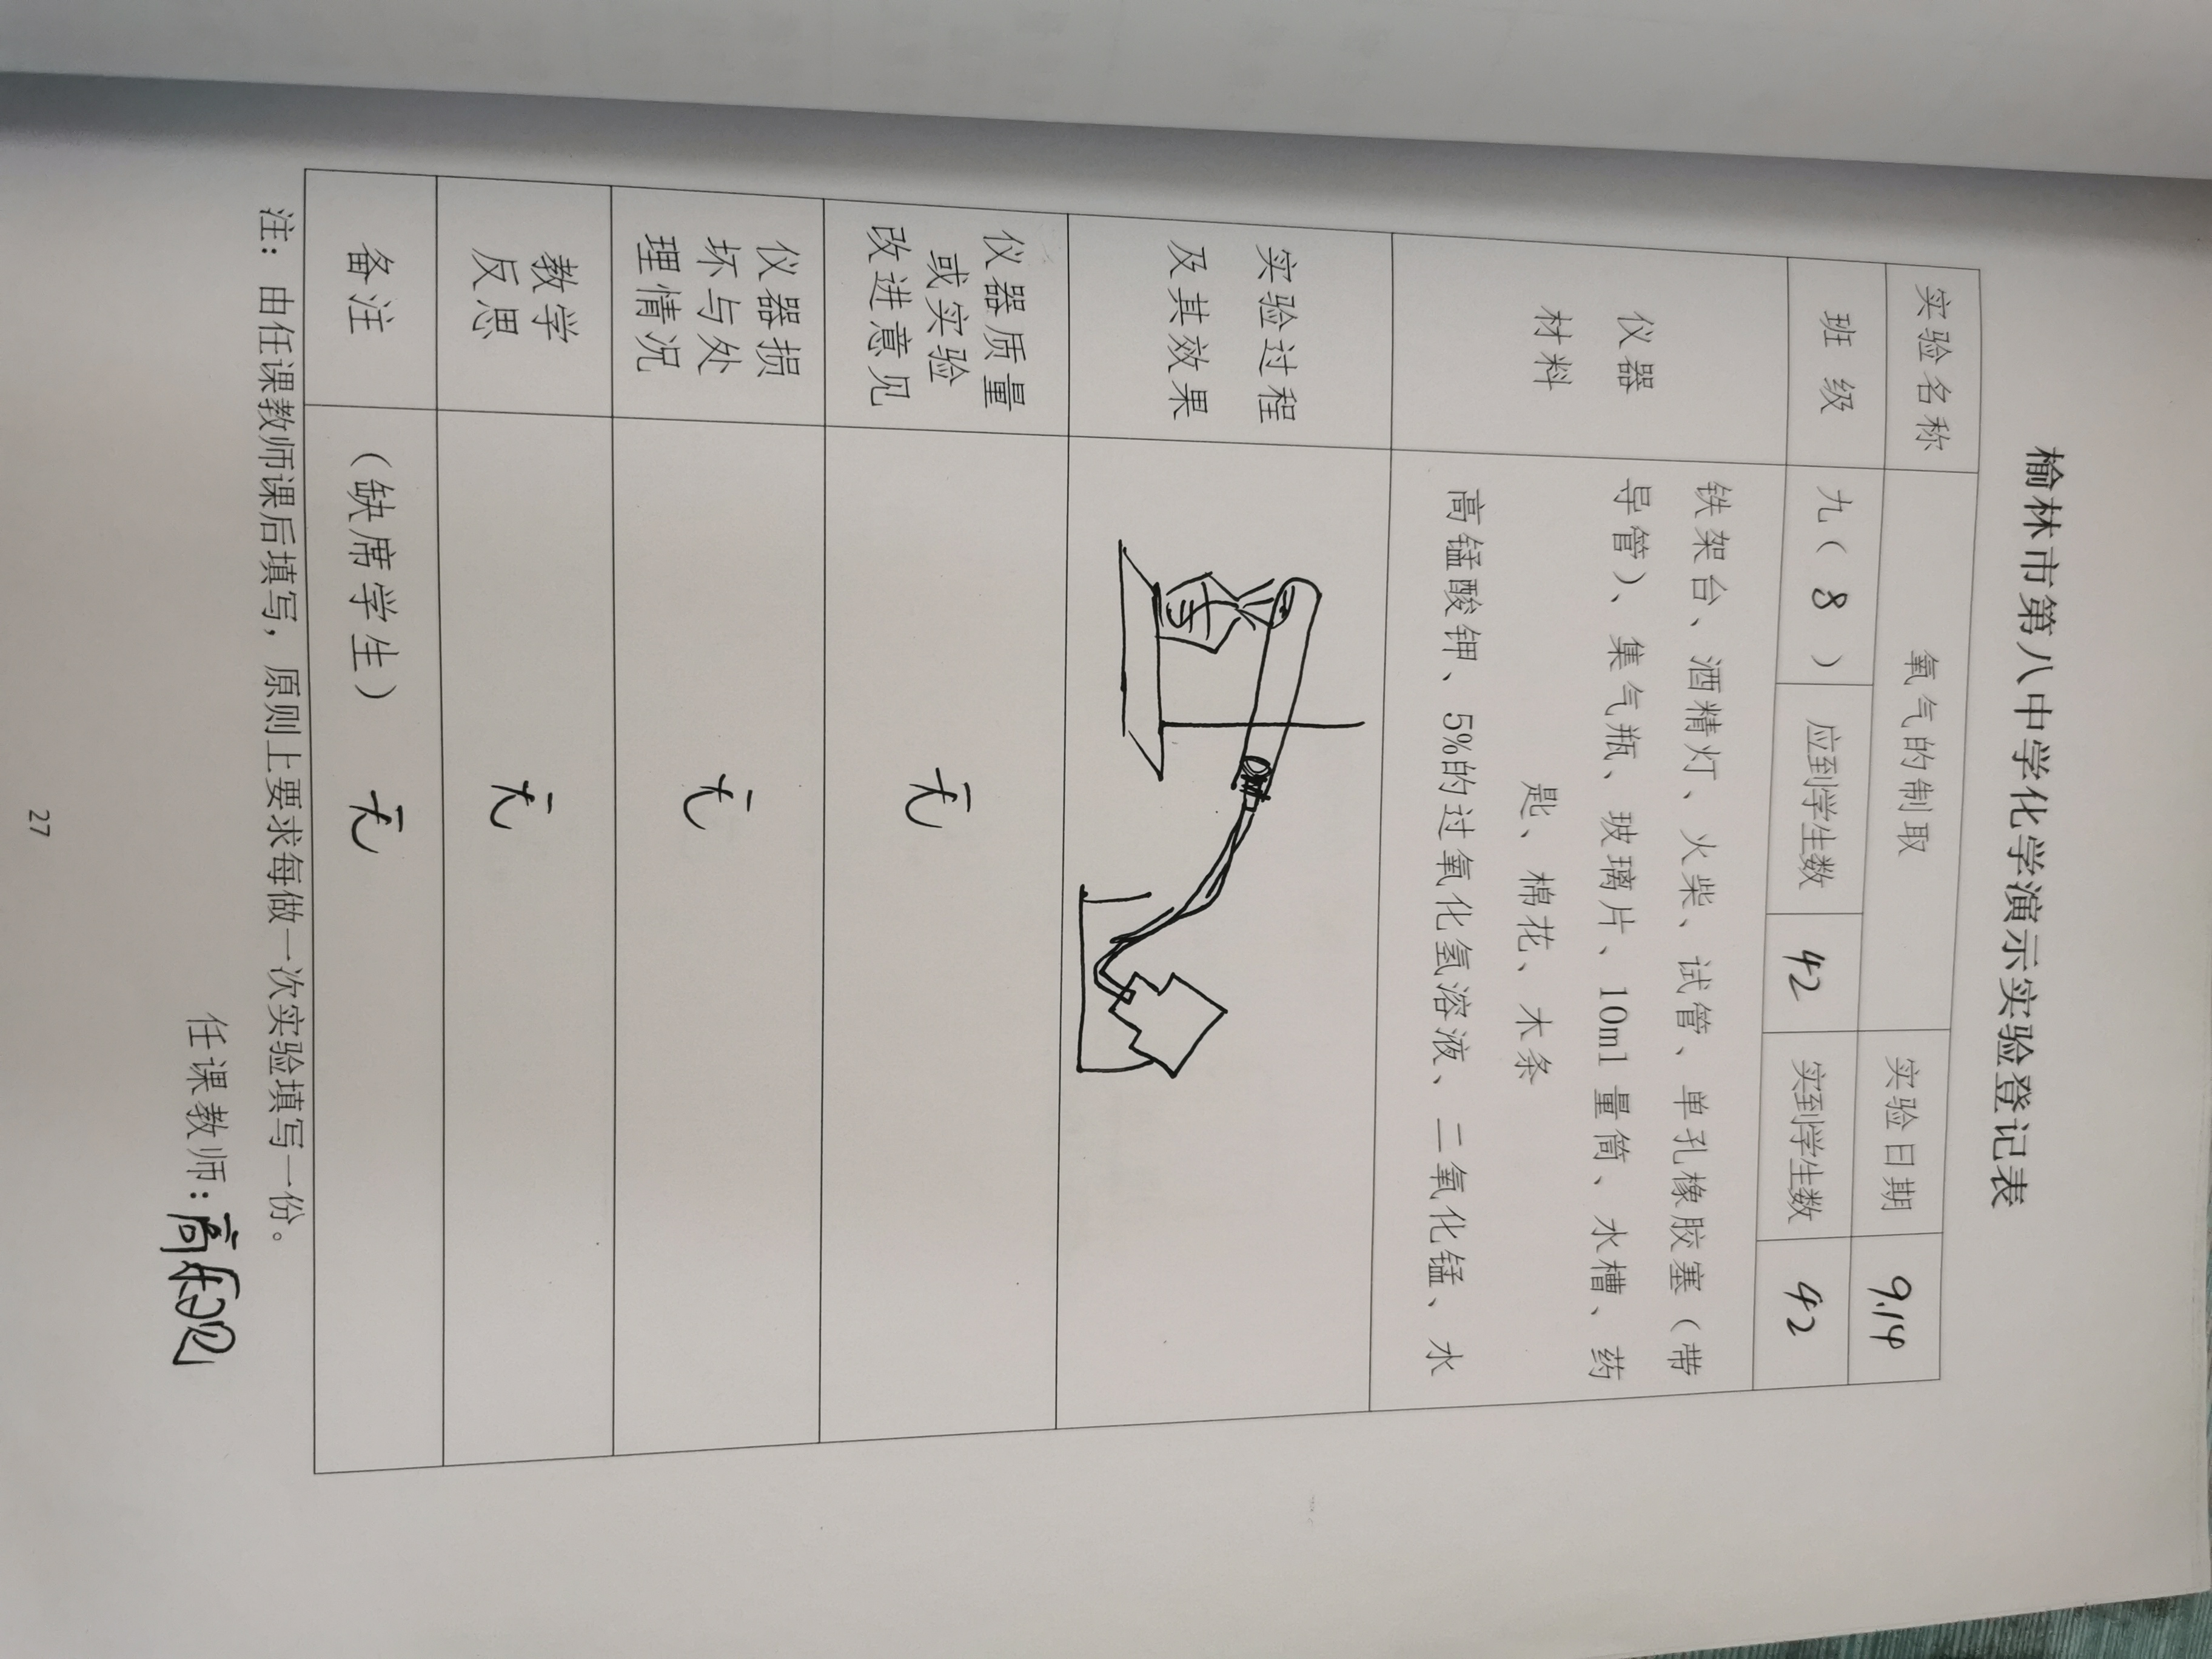 榆林市第八中学化学演示实验登记表
实验名称 氧气的制取 实验日期 9.14
班 级 九（ 8 ） 应到学生数 42 实到学生数 42
仪器
材料
铁架台、酒精灯、火柴、试管、单孔橡胶塞（带
导管）、集气瓶、玻璃片、10ml 量筒、水槽、药
匙、棉花、木条
高锰酸钾、5%的过氧化氢溶液、二氧化锰、水
实验过程
及其效果
仪器质量
或实验
改进意见
无
仪器损
坏与处
理情况
无
教学
反思
无
备注 （缺席学生） 无
注：由任课教师课后填写，原则上要求每做一次实验填写一份。
任课教师：高
27